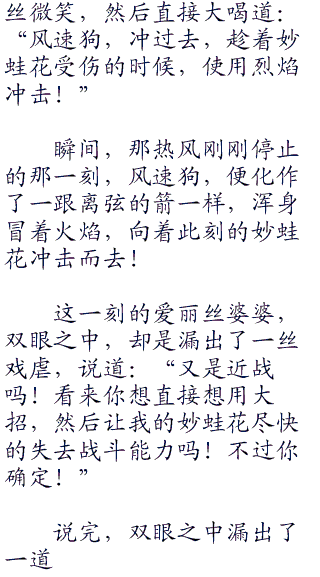 丝微笑，然后直接大喝道：
“风速狗，冲过去，趁着妙
蛙花受伤的时候，使用烈焰
冲击！”
瞬间，那热风刚刚停止
的那一刻，风速狗，便化作
了一跟离弦的箭一样，浑身
冒着火焰，向着此刻的妙蛙
花冲击而去！
这一刻的爱丽丝婆婆，
双眼之中，却是漏出了一丝
戏虐，说道：“又是近战
吗！看来你想直接想用大
招，然后让我的妙蛙花尽快
的失去战斗能力吗！不过你
确定！”
说完，双眼之中漏出了
一道